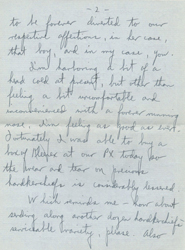 - 2 -
to be forever devoted to our
respected affections, in her case,
that boy, and in my case, you.
I'm harboring a bit of a
head cold at present, but other than
feeling a bit uncomfortable and
inconvenienced with a forever running
nose, I'm feeling as good as ever.
Fortunately I was able to buy a
box of Kleenex at our PX today so
the wear and tear on precious
handkerchiefs is considerably lessened.
Which reminds me - how about
sending along another dozen handkerchiefs
serviceable variety, please. Also